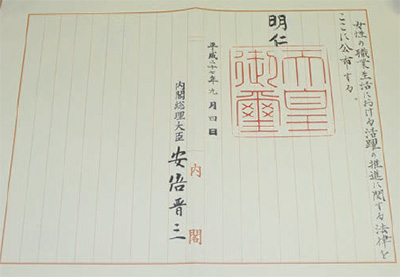 女性の職業生活における活躍の推進に関する法律を
ここに公布する。
明仁
天皇
御璽
平成二十七年九月四日
内閣総理大臣 安倍晋三
内閣